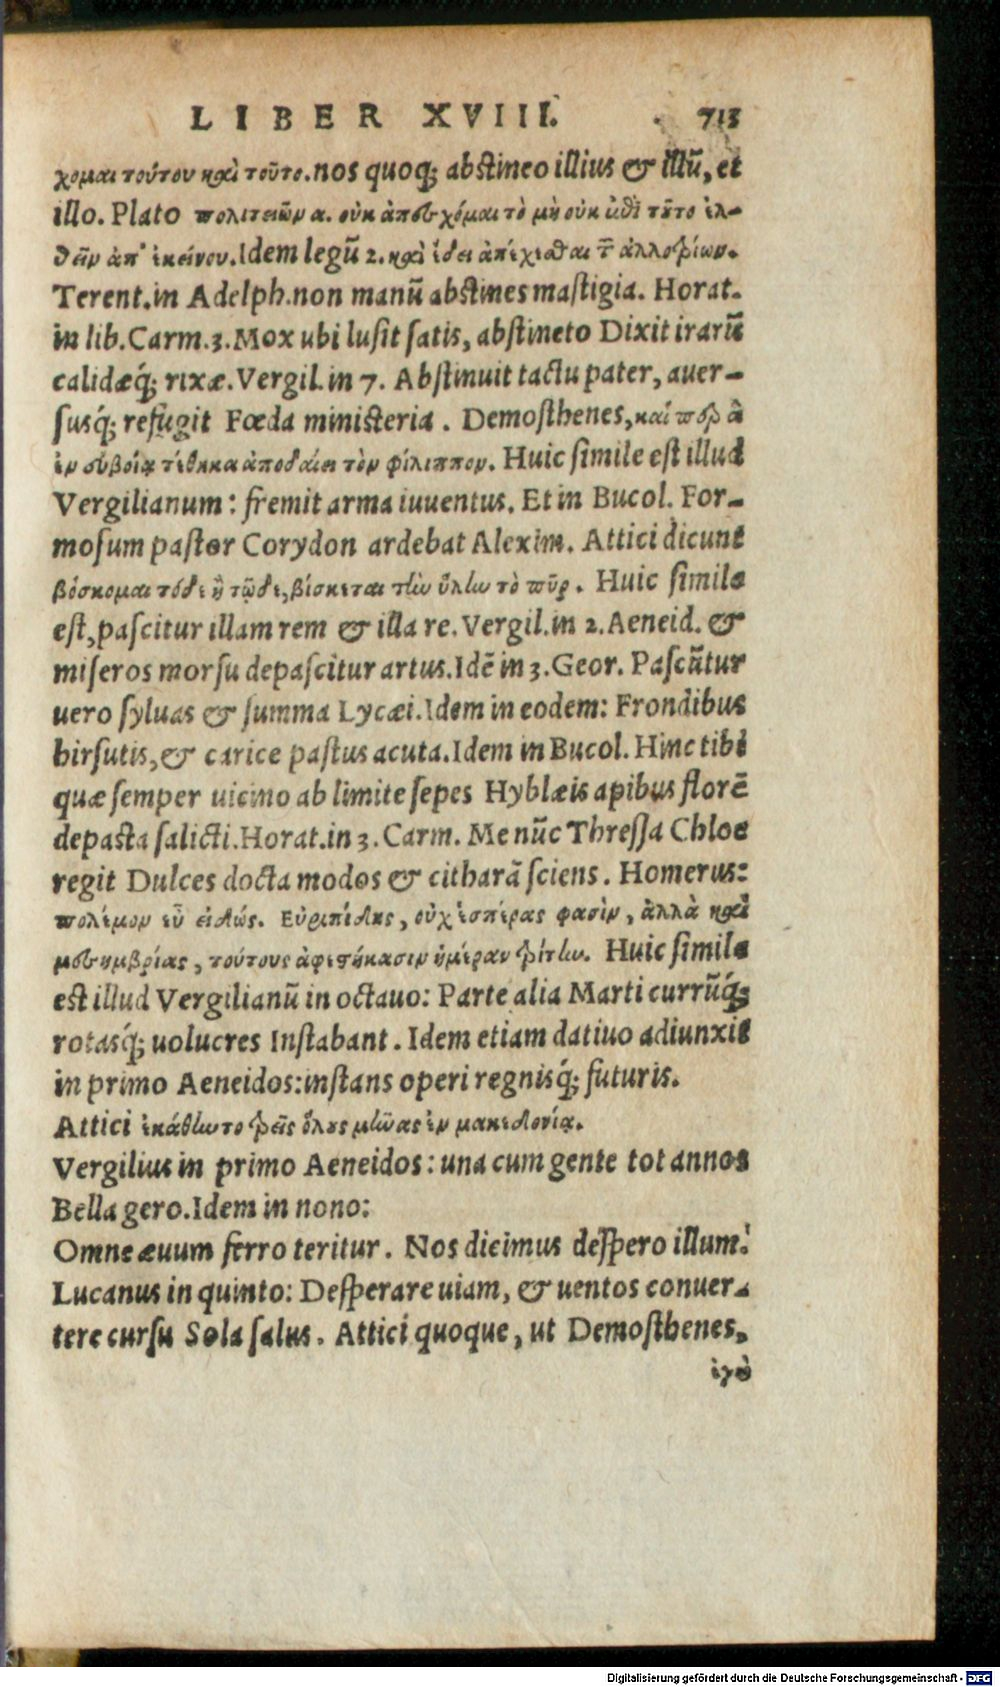 LIBER XVIII. 713
χομαι τούτου καὶ τοῦτο. nos quoq; abstineo illius & illũ, et
illo. Plato πολιτειῶν α. οὐκ ἀπεσχόμαι τὸ μὴ οὐκ ἐπὶ τοῦτο ἐλ-
θεῖν ἀπ' ἐκείνου. Idem legũ 2. καὶ ἔδει ἀπέχεσθαι τ ἀλλοτρίων.
Terent. in Adelph. non manũ abstines mastigia. Horat.
in lib. Carm. 3. Mox ubi lusit satis, abstineto Dixit irarũ
calidæq́; rixæ. Vergil. in 7. Abstinuit tactu pater, auer-
susq́; refugit Fœda ministeria. Demosthenes, καίπερ ἃ
ἐν εὐβοίᾳ τέθηκα ἀποδαίει τὸν φίλιππον. Huic simile est illud
Vergilianum: fremit arma iuuentus. Et in Bucol. For-
mosum pastor Corydon ardebat Alexim. Attici dicunt
βόσκομαι τόδε ἢ τῷδε, βόσκεται τὴν ὕλην τὸ πῦρ. Huic simile
est, pascitur illam rem & illa re. Vergil. in 2. Aeneid. &
miseros morsu depascitur artus. Idẽ in 3. Geor. Pascũtur
uero syluas & summa Lycæi. Idem in eodem: Frondibus
hirsutis, & carice pastus acuta. Idem in Bucol. Hinc tibi
quæ semper uicino ab limite sepes Hyblæis apibus florẽ
depasta salicti. Horat. in 3. Carm. Me nũc Thressa Chloe
regit Dulces docta modos & citharã sciens. Homerus:
πολέμον εὖ εἰδώς. Εὐριπίδης, οὐχ ἑσπέρας φασὶν, ἀλλὰ καὶ
μεσημβρίας, τούτους ἀφεστήκασιν ἡμέραν τρίτην. Huic simile
est illud Vergilianũ in octauo: Parte alia Marti currũq́;
rotasq́; uolucres Instabant. Idem etiam datiuo adiunxit
in primo Aeneidos: instans operi regnisq́; futuris.
Attici ἐκάθηντο τρεῖς ὅλους μῆνας ἐν μακεδονίᾳ.
Vergilius in primo Aeneidos: una cum gente tot annos
Bella gero. Idem in nono:
Omne æuum ferro teritur. Nos dicimus despero illum.
Lucanus in quinto: Desperare uiam, & uentos conuer-
tere cursu Sola salus. Attici quoque, ut Demosthenes,
ἐγὼ
Digitalisierung gefördert durch die Deutsche Forschungsgemeinschaft - DFG